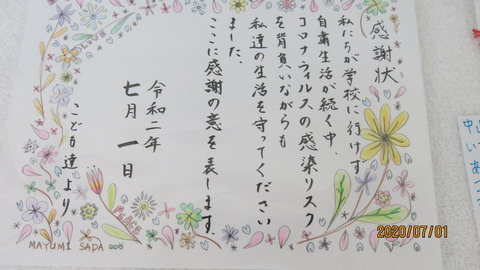 感謝状
私たちが学校に行けず
自粛生活が続く中、
コロナウィルスの感染リスク
を背負いながらも
私達の生活を守ってください
ました。
ここに感謝の意を表します。
令和二年
七月一日
こども達より
MAYUMI SADA
2020/07/01